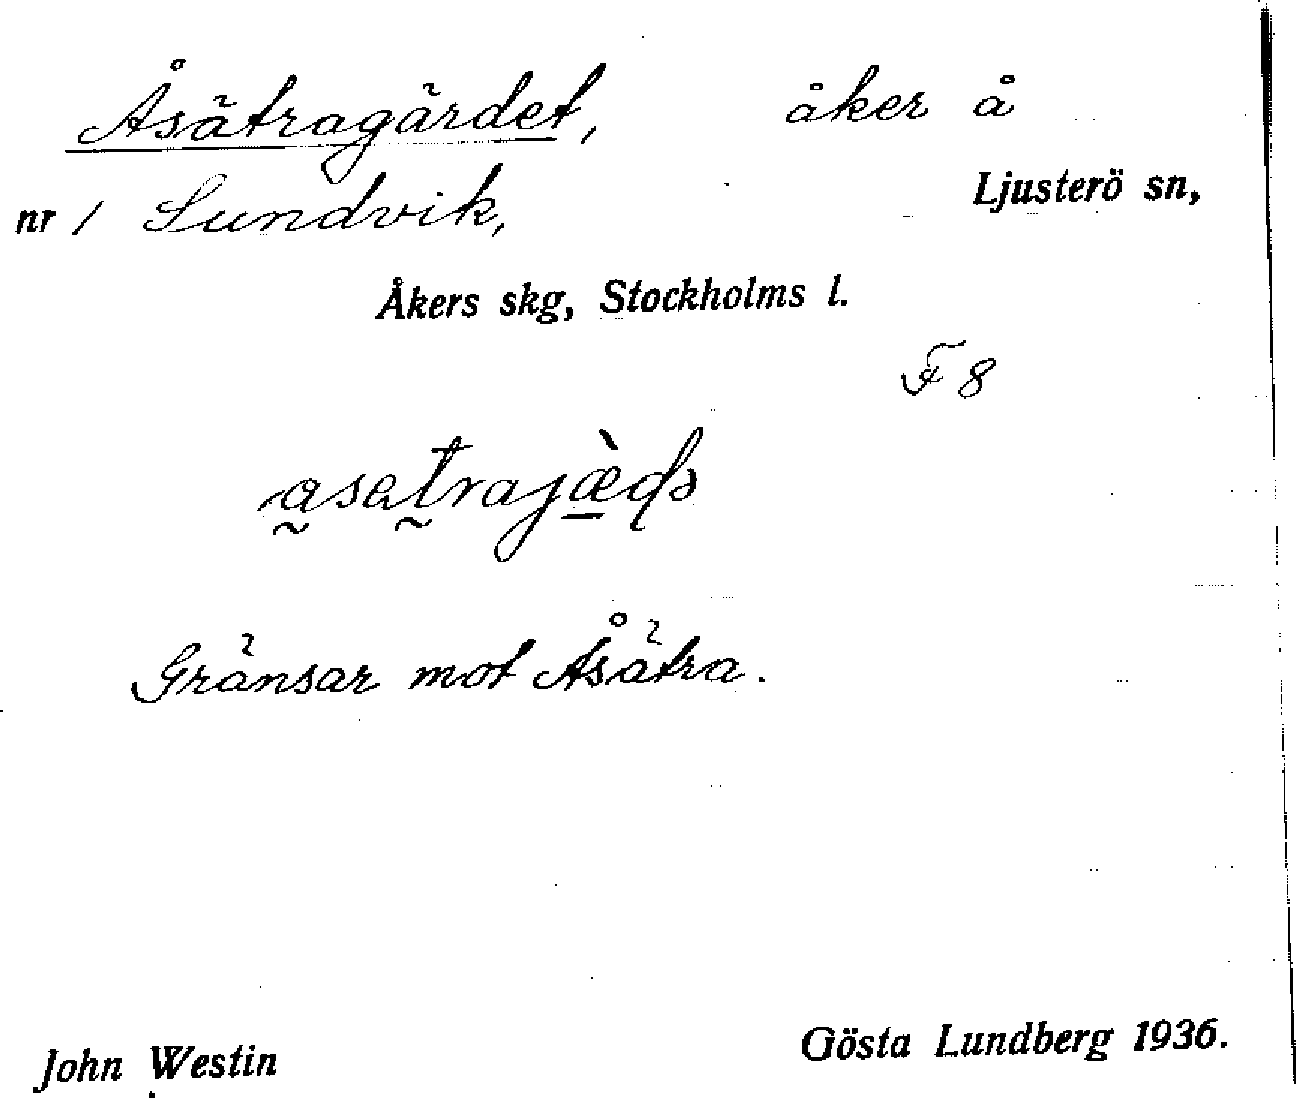 Åsätragärdet, åker å
nr 1 Sundvik, Ljusterö sn,
Åkers skg, Stockholms l.
F 8
Gränsar mot Åsätra.
John Westin Gösta Lundberg 1936.